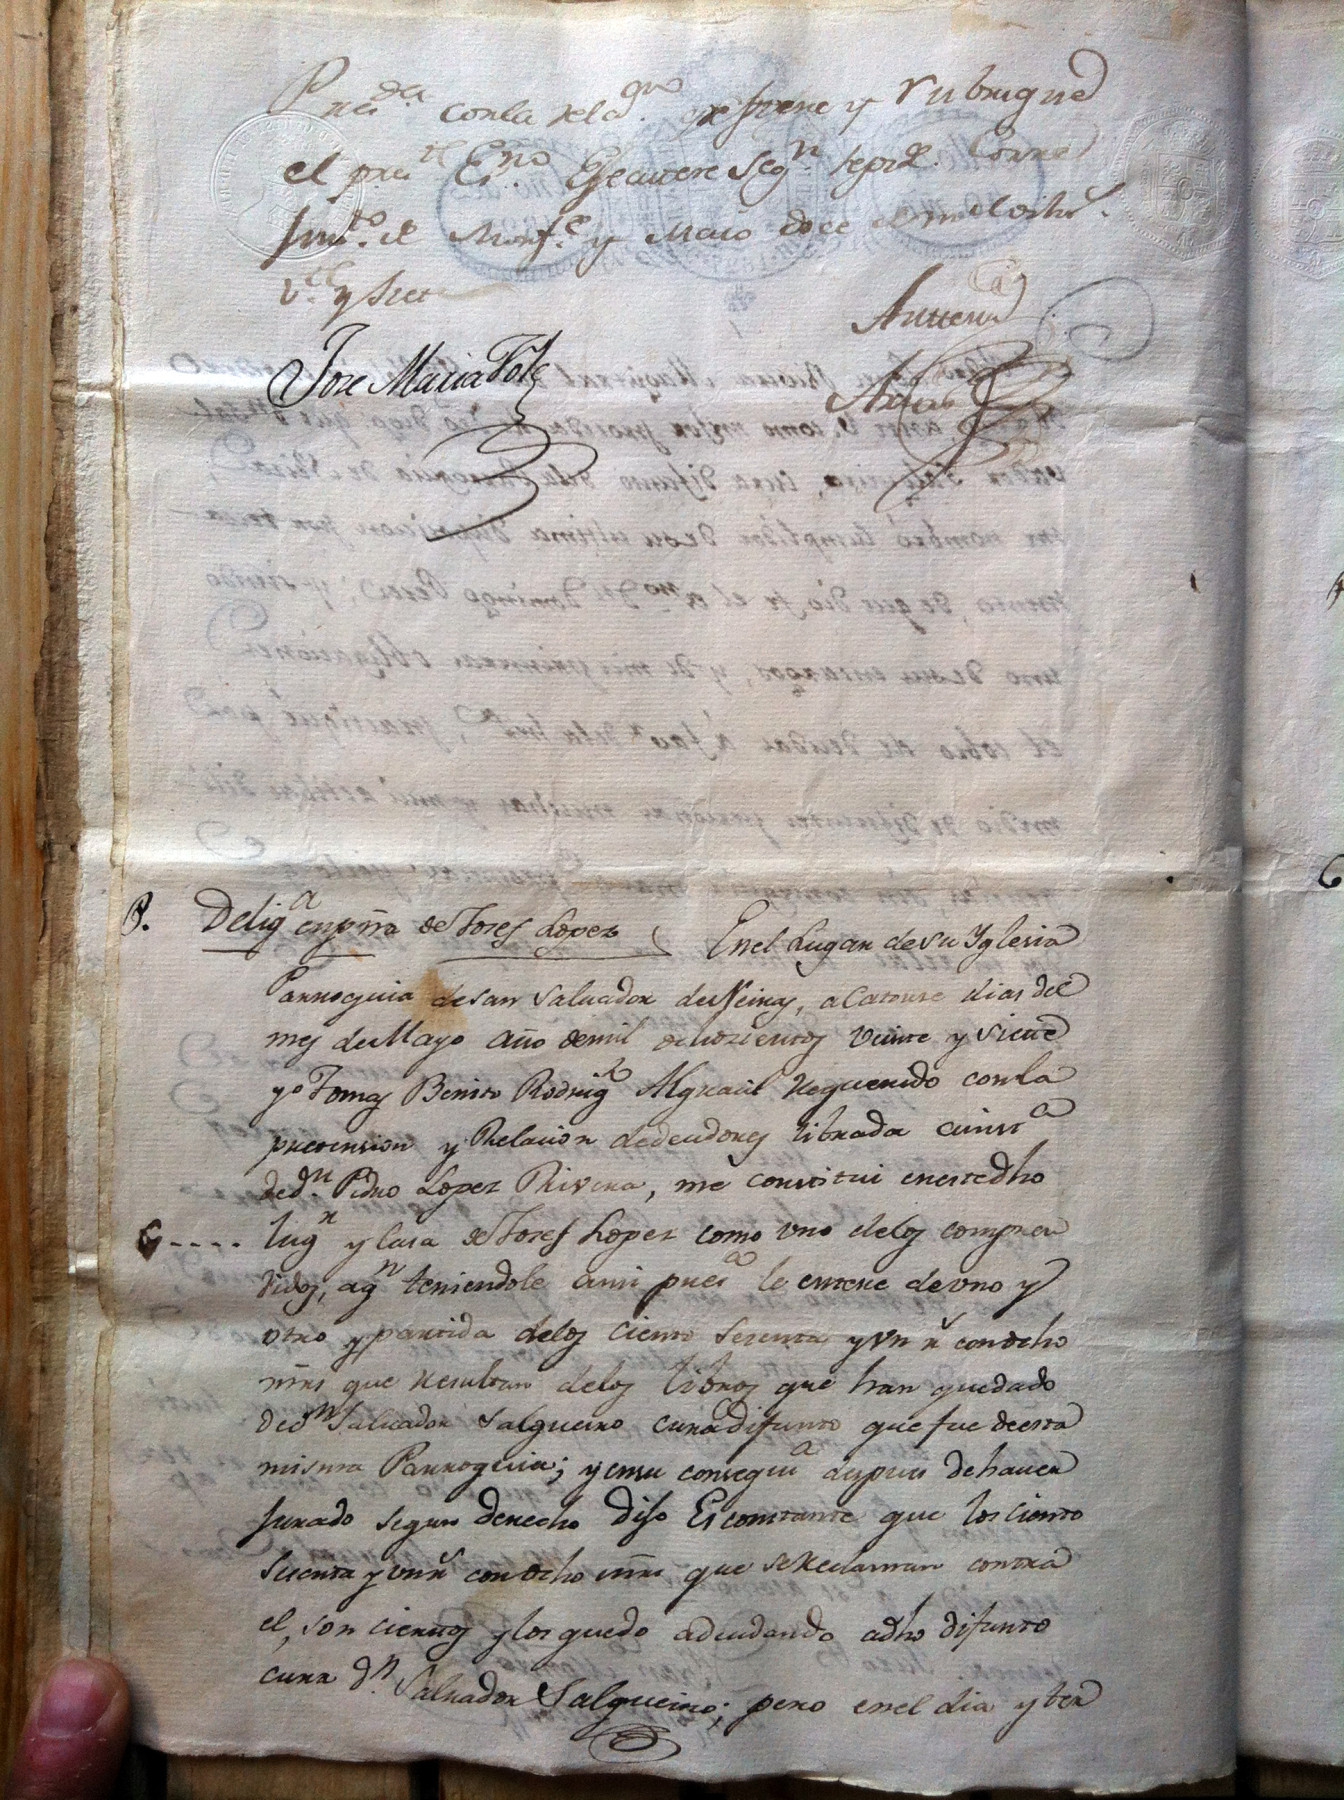 Pres.da con la relaon. que firme y rubrique
el pres.te Es.no Ejecutese Seg.n se pide. Corre
Jun.to de Monf.e y Maio doce de mil ocho.s
v.te y siete
Jose Maria
Anttemi
P. Delig.a en pñra de Josef Lopez En el Lugar de su Yglesia
Parroquia de san Salvador de Neiras, a Catorce dias del
mes de Mayo año de mil ochozientos veinte y siete
yo Tomas Benito Rodrig.z Alguacil Requerido con la
pretension y Relacion de deudores librada a inst.a
de d.n Pedro Lopez Rivera, me constitui en este dho
6---- lug.r y Casa de Josef Lopez como uno de los compren
didos, a q.n teniendole a mi pres.a le entere de uno y
otro y partida de los ciento sesenta y un r.s con ocho
mrs que Resultan de los libros que han quedado
de d.n Salvador Salgueiro cura difunto que fue de esta
misma Parroquia; y en su consequ.a despues de haver
Jurado segun derecho Dijo Es constante que los ciento
sesenta y un r.s con ocho mrs que se Reclaman contra
el, son ciertos y los quedo adeudando a dho difunto
cura d.n Salvador Salgueiro; pero en el dia y ter